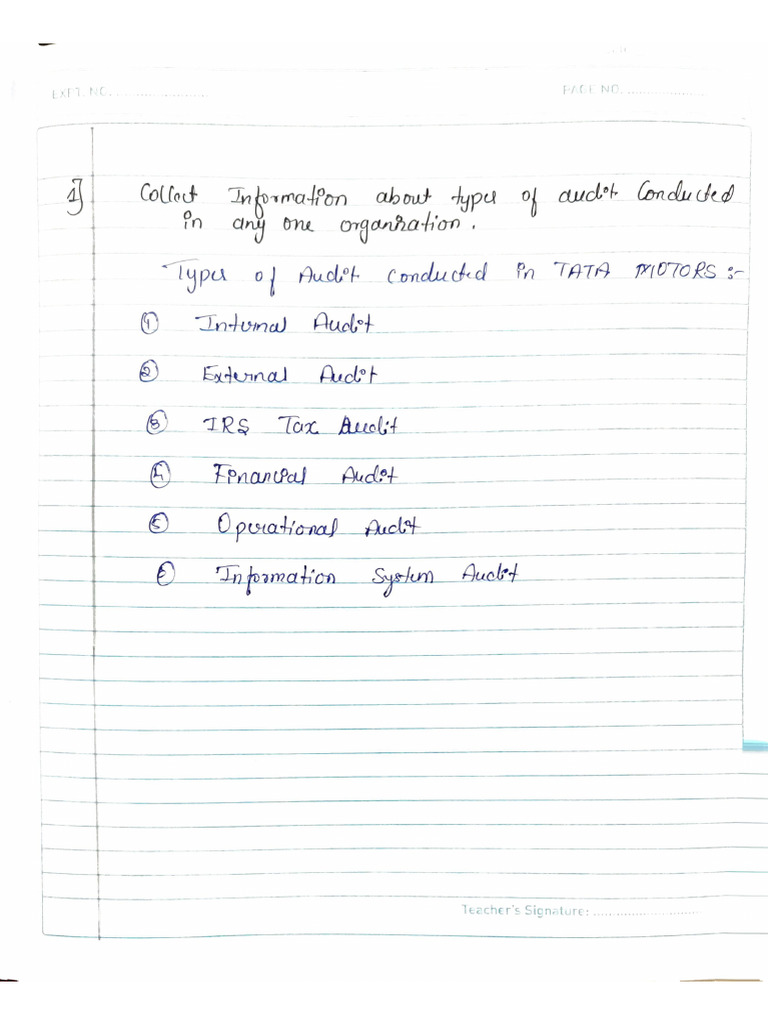 EXPT. NO. ......................
PAGE NO. ...................
1] Collect Information about types of audit Conducted
in any one organization.
Types of Audit conducted in TATA MOTORS :-
① Internal Audit
② External Audit
③ IRS Tax Audit
④ Financial Audit
⑤ Operational Audit
Information System Audit
Teacher's Signature: ...........................